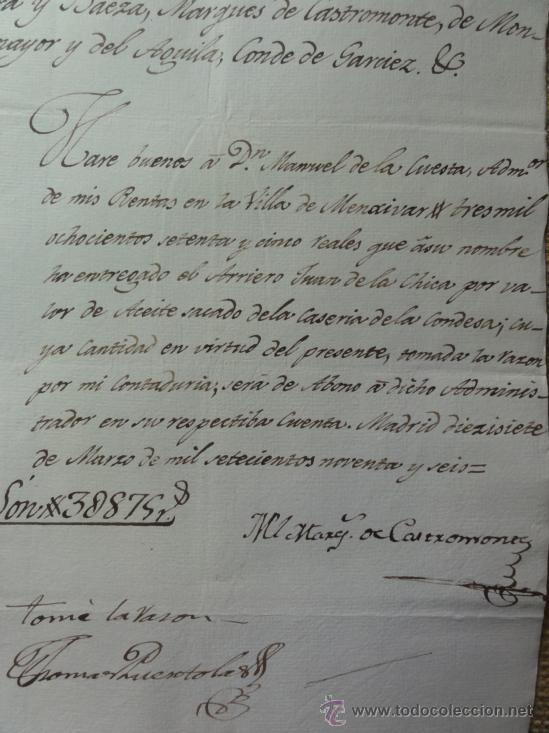 y Baeza, Marques de Castromonte, de Mon-
mayor y del Aguila, Conde de Garciez. &.
Hare buenos â Dn. Manuel de la Cuesta, Admor
de mis Rentas en la Villa de Menxivar tres mil
ochocientos setenta y cinco reales que âsu nombre
ha entregado el Arriero Juan de la Chica por va-
lor de Aceite sacado dela Caseria dela Condesa; cu-
ya Cantidad en virtud del presente, tomada la razon
por mi Contaduria; serâ de Abono â dicho Adminis-
trador en su respectiba Cuenta. Madrid diezisiete
de Marzo de mil setecientos noventa y seis=
Son 3875 rs
El Marqs. de Castromonte
tomè la razon
Thomas
todocoleccion
© www.todocoleccion.net